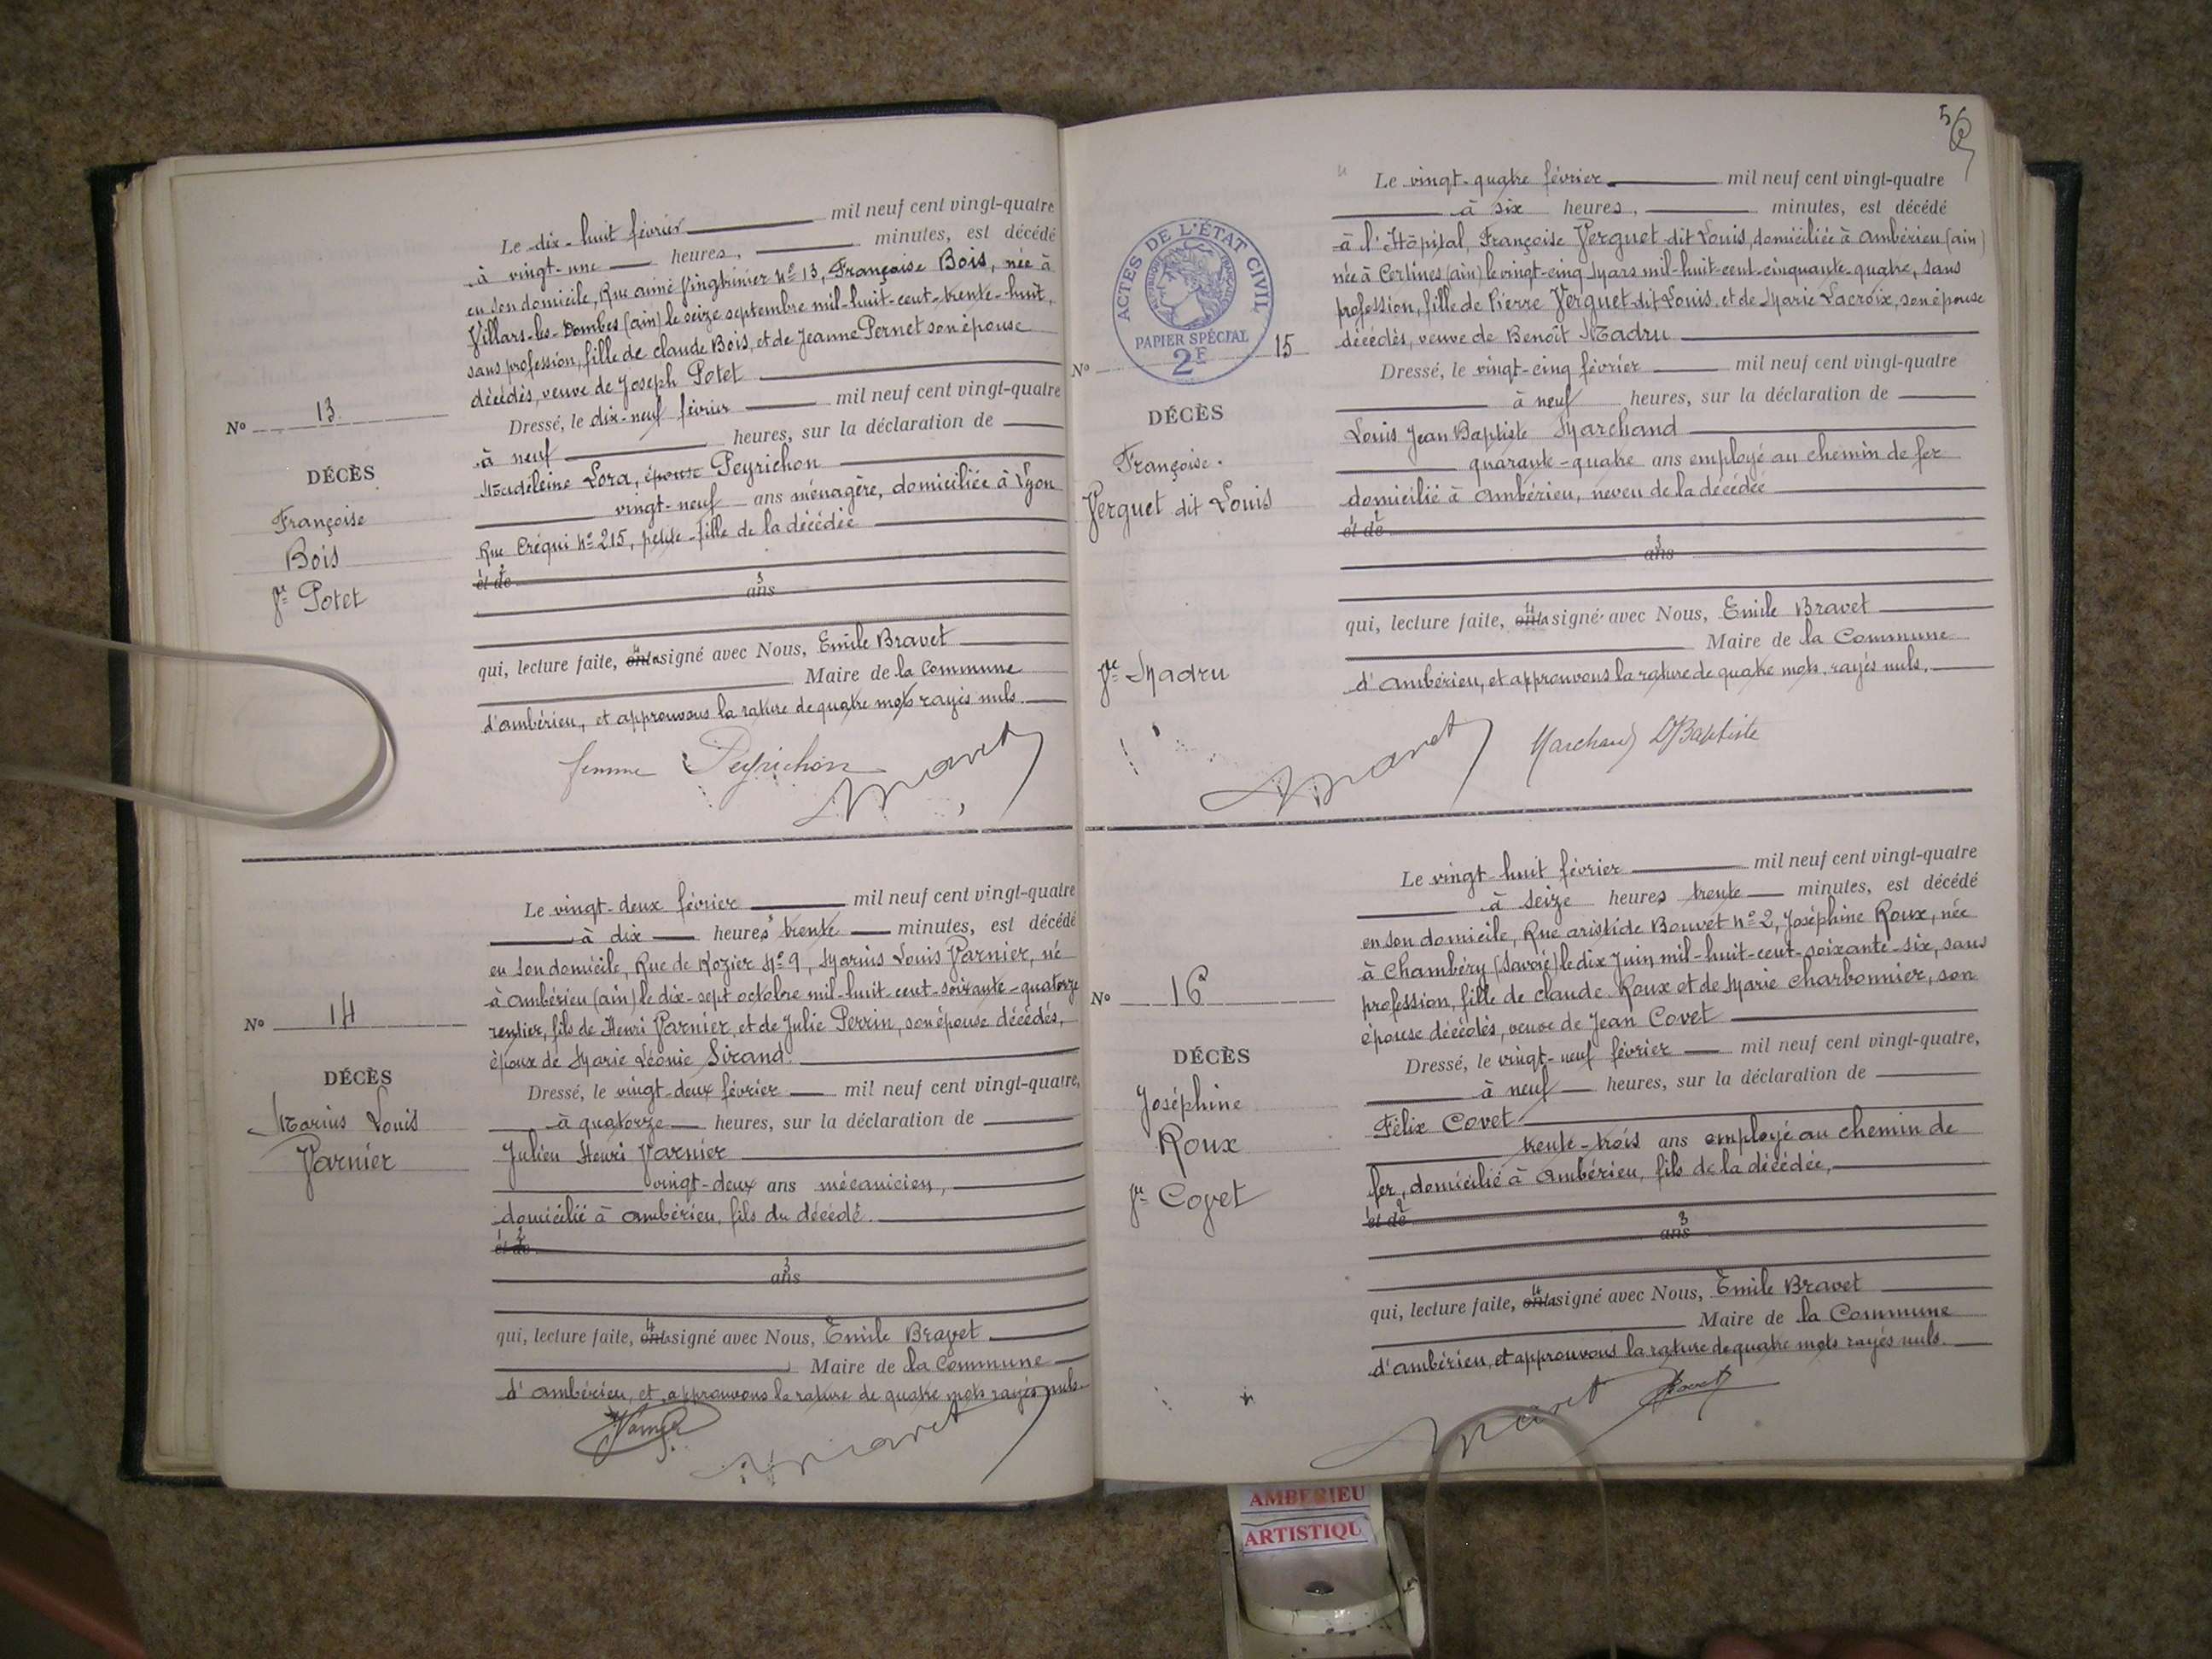 Le dix-huit février mil neuf cent vingt-quatre
à vingt-une heures, minutes, est décédé
en son domicile, Rue aimé Vingtrinier No 13, Françoise Bois, née à
Villars-les-Dombes (ain) le seize septembre mil-huit-cent-trente-huit,
sans profession, fille de claude Bois, et de Jeanne Pernet son épouse
décédés, veuve de Joseph Potet
No 13
Dressé, le dix-neuf février mil neuf cent vingt-quatre
à neuf heures, sur la déclaration de
DÉCÈS
Madeleine Lora, épouse Peyrichon
Françoise
vingt-neuf ans ménagère, domiciliée à Lyon
Bois
Rue Créqui No 215, petite-fille de la décédée
Vve Potet
et de
ans
qui, lecture faite, ont signé avec Nous, Emile Bravet
Maire de la Commune
d'ambérieu, et approuvons la rature de quatre mots rayés nuls.
femme Peyrichon
Bravet
Le vingt-deux février mil neuf cent vingt-quatre
à dix heures trente minutes, est décédé
en son domicile, Rue de Rozier No 9, Marius Louis Varnier, né
à ambérieu (ain) le dix-sept octobre mil-huit-cent-soixante-quatorze
No 14
rentier, fils de Henri Varnier, et de Julie Perrin, son épouse décédés,
époux de Marie Léonie Sirand.
DÉCÈS
Dressé, le vingt-deux février mil neuf cent vingt-quatre,
Marius Louis
à quatorze heures, sur la déclaration de
Varnier
Julien Henri Varnier
vingt-deux ans mécanicien,
domicilié à ambérieu, fils du décédé.
et de
ans
qui, lecture faite, ont signé avec Nous, Emile Bravet
Maire de la Commune
d'ambérieu, et approuvons la rature de quatre mots rayés nuls.
Varnier
Bravet
56
Le vingt-quatre février mil neuf cent vingt-quatre
à six heures, minutes, est décédé
à l'Hôpital, Françoise Verguet dit Louis, domiciliée à ambérieu (ain)
née à Certines (ain) le vingt-cinq Mars mil-huit-cent-cinquante-quatre, sans
profession, fille de Pierre Verguet dit Louis, et de Marie Lacroix, son épouse
décédés, veuve de Benoît Madru
ACTES DE L'ÉTAT CIVIL
RÉPUBLIQUE FRANÇAISE
PAPIER SPÉCIAL
2F
No 15
Dressé, le vingt-cinq février mil neuf cent vingt-quatre
à neuf heures, sur la déclaration de
DÉCÈS
Louis Jean Baptiste Marchand
Françoise
quarante-quatre ans employé au chemin de fer
Verguet dit Louis
domicilié à ambérieu, neveu de la décédée
et de
ans
qui, lecture faite, ont signé avec Nous, Emile Bravet
Maire de la Commune
Vve Madru
d'ambérieu, et approuvons la rature de quatre mots rayés nuls.
Bravet
Marchand Baptiste
Le vingt-huit février mil neuf cent vingt-quatre
à seize heures trente minutes, est décédé
en son domicile, Rue aristide Bouvet No 2, Joséphine Roux, née
à Chambéry (Savoie) le dix Juin mil-huit-cent-soixante-six, sans
No 16
profession, fille de claude Roux et de Marie Charbonnier, son
épouse décédés, veuve de Jean Covet
DÉCÈS
Dressé, le vingt-neuf février mil neuf cent vingt-quatre,
à neuf heures, sur la déclaration de
Joséphine
Félix Covet
Roux
trente-trois ans employé au chemin de
Vve Covet
fer, domicilié à ambérieu, fils de la décédée,
et de
ans
qui, lecture faite, ont signé avec Nous, Emile Bravet
Maire de la Commune
d'ambérieu, et approuvons la rature de quatre mots rayés nuls.
Bravet
Covet
AMBERIEU
ARTISTIQU